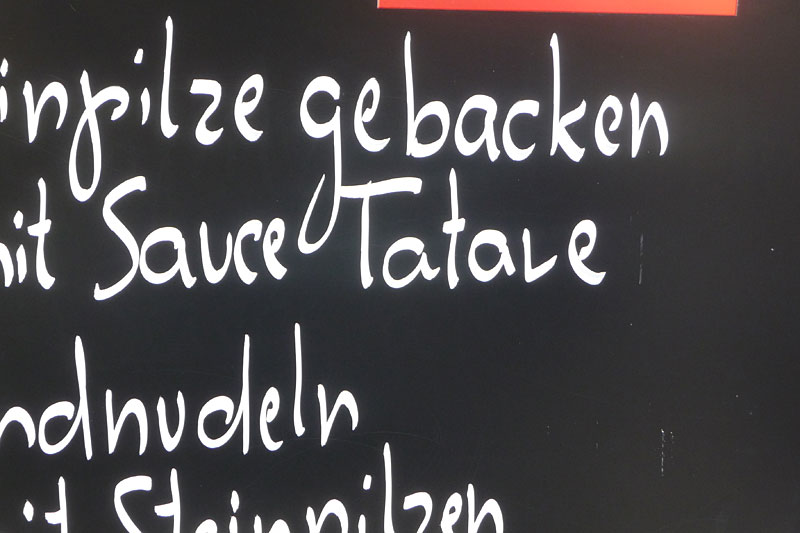 inpilze gebacken
mit Sauce Tatare
ndnudeln
it Steinpilzen